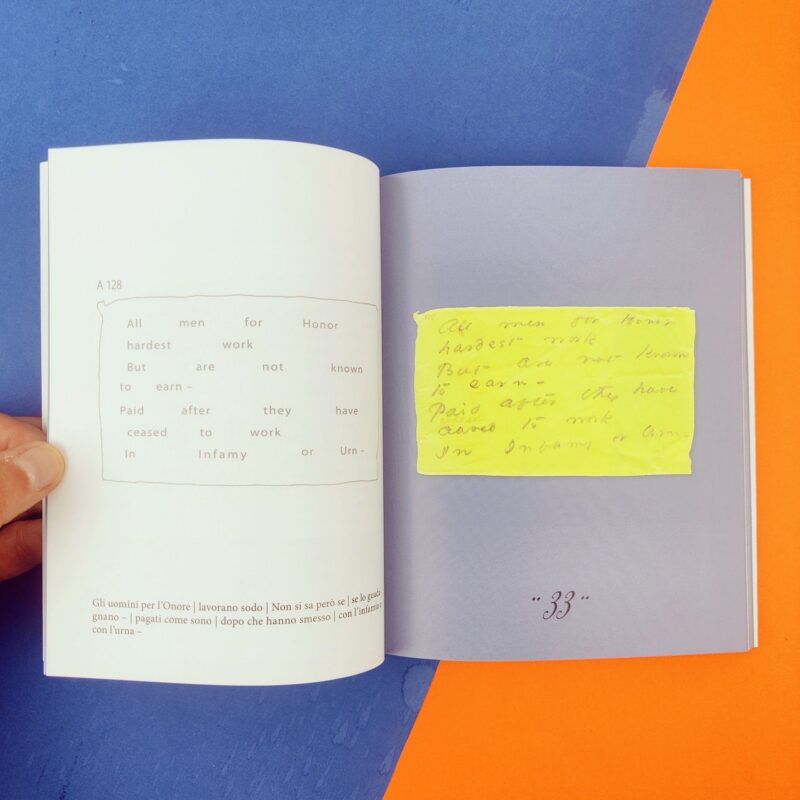 A 128
All men for Honor
hardest work
But are not known
to earn –
Paid after they have
ceased to work
In Infamy or Urn –
Gli uomini per l'Onore | lavorano sodo | Non si sa però se | se lo guada
gnano – | pagati come sono | dopo che hanno smesso | con l'infamia o
con l'urna –
All men for Honor
hardest work
But are not known
to earn –
Paid after they have
ceased to work
In Infamy or Urn –
" 33 "